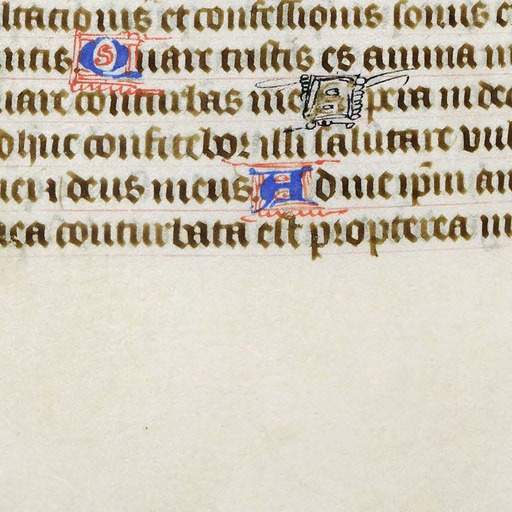 ltationis et confessionis sonus e
ntis Quare tristis es anima m
uare conturbas me Spera in deo
dhuc confitebor illi salutare vul
mei et deus meus Ad me ipm an
mea conturbata est propterea m